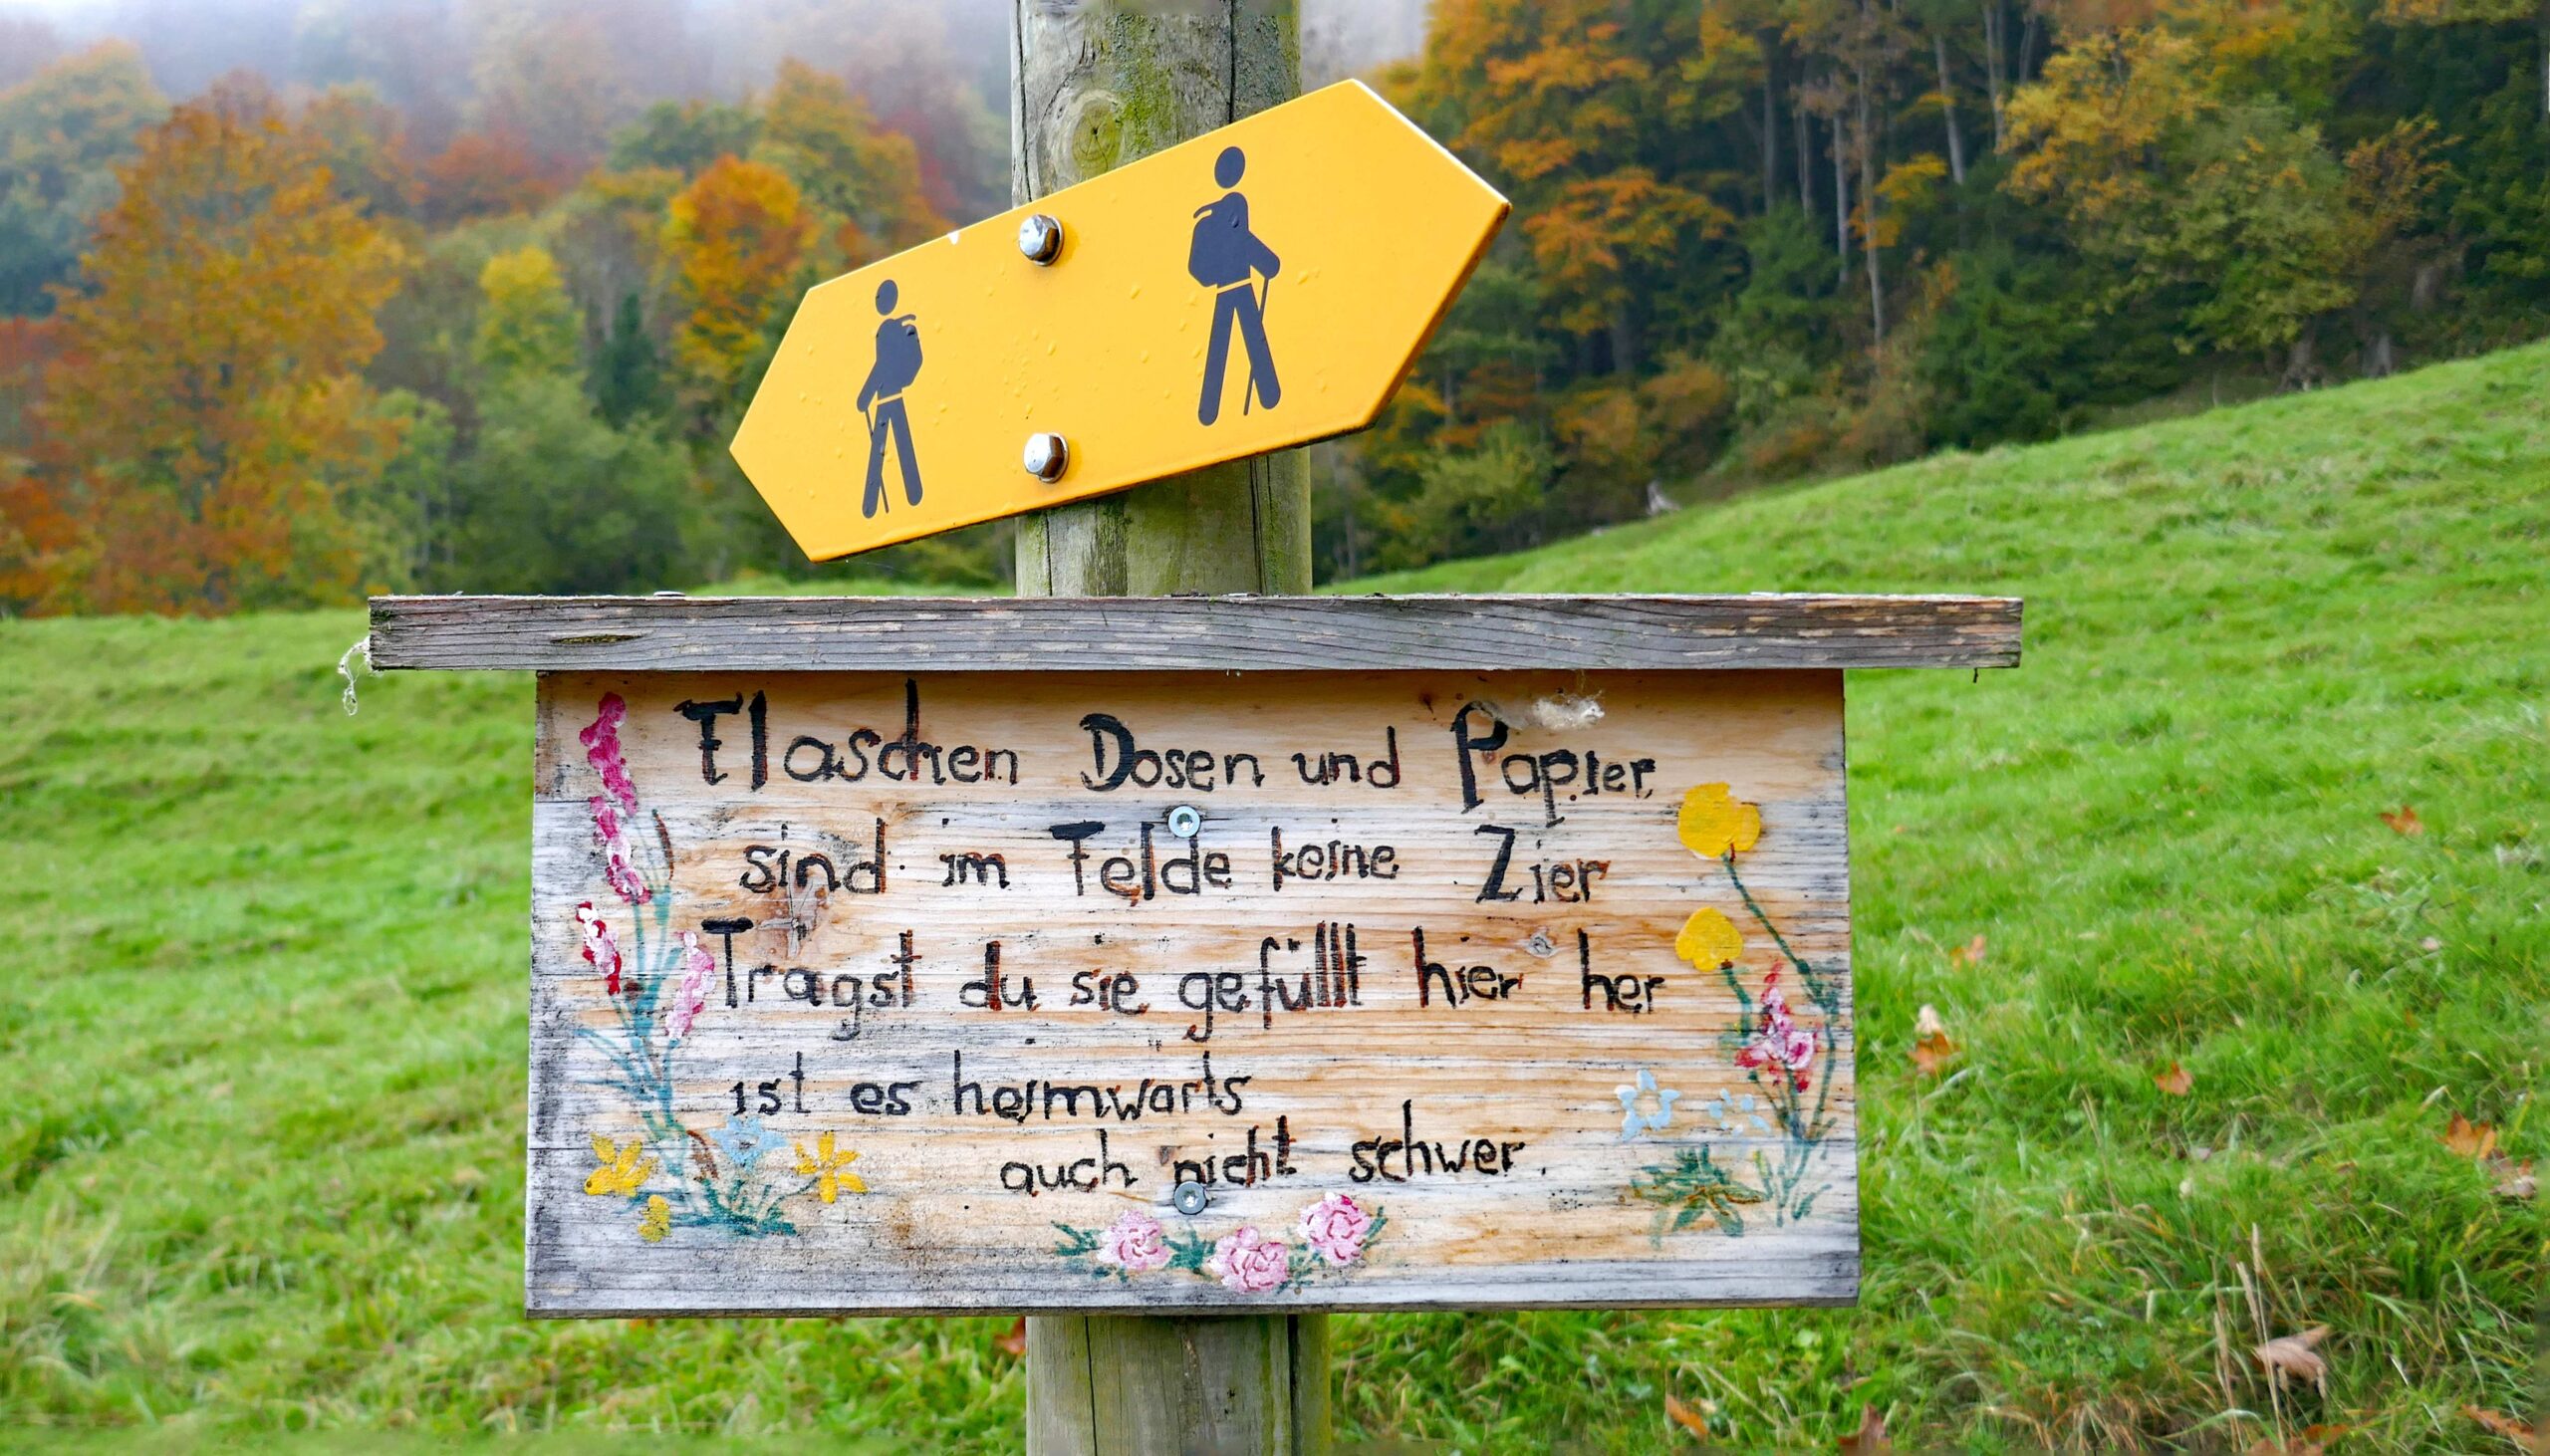 Flaschen Dosen und Papier,
sind im Felde keine Zier
Tragst du sie gefüllt hier her
ist es heimwarts
auch nicht schwer.